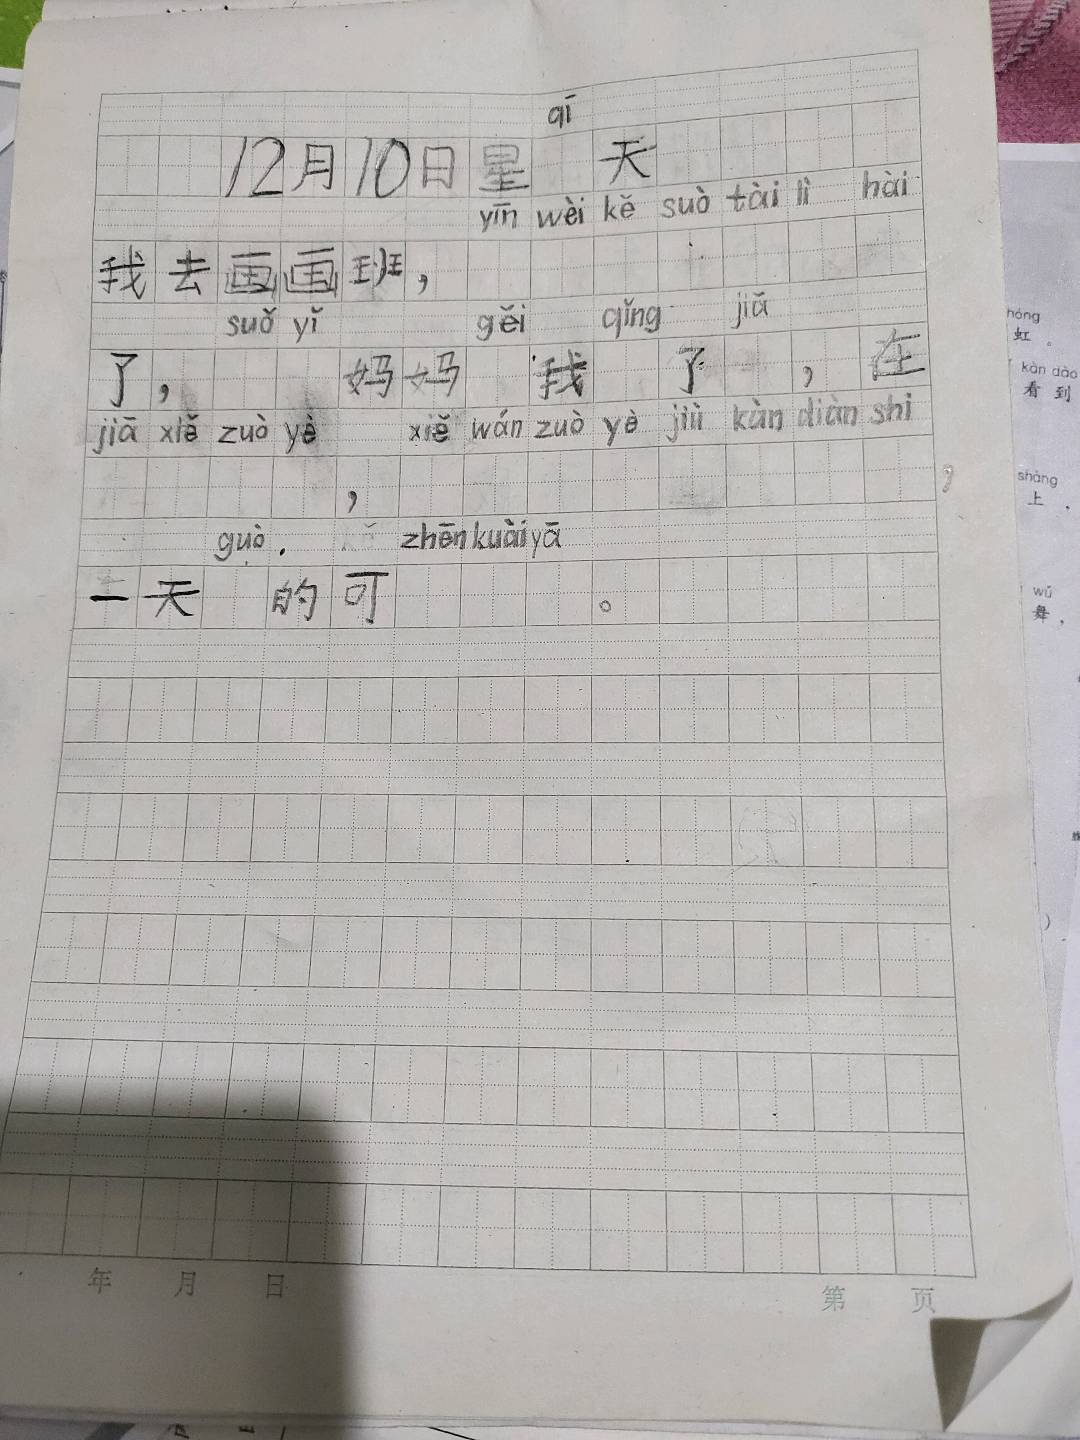 qī
12月10日星 天
yīn wèi kě suò tài lì hài
我去画画班,
suǒ yǐ gěi qǐng jiǎ
了, 妈妈 我 了 , 在
jiā xiě zuò yè xiě wán zuò yè jiù kàn diàn shì
, ,
guò . zhēn kuài yā
一天 的可 。
年 月 日 第 页
hóng
虹 。
kàn dào
看 到
shàng
上 ,
wǔ
舞 ,
)